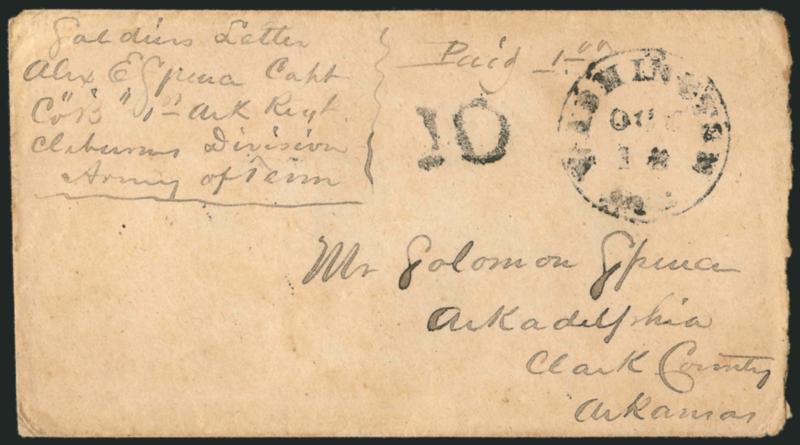 Soldiers Letter
Alex E Spence Capt
Co "B" 1st Ark Regt.
Cleburns Division
Army of Tenn
Paid 1.00
10
WASHINGTON
Mr Solomon Spence
Arkadelphia
Clark County
Arkansas